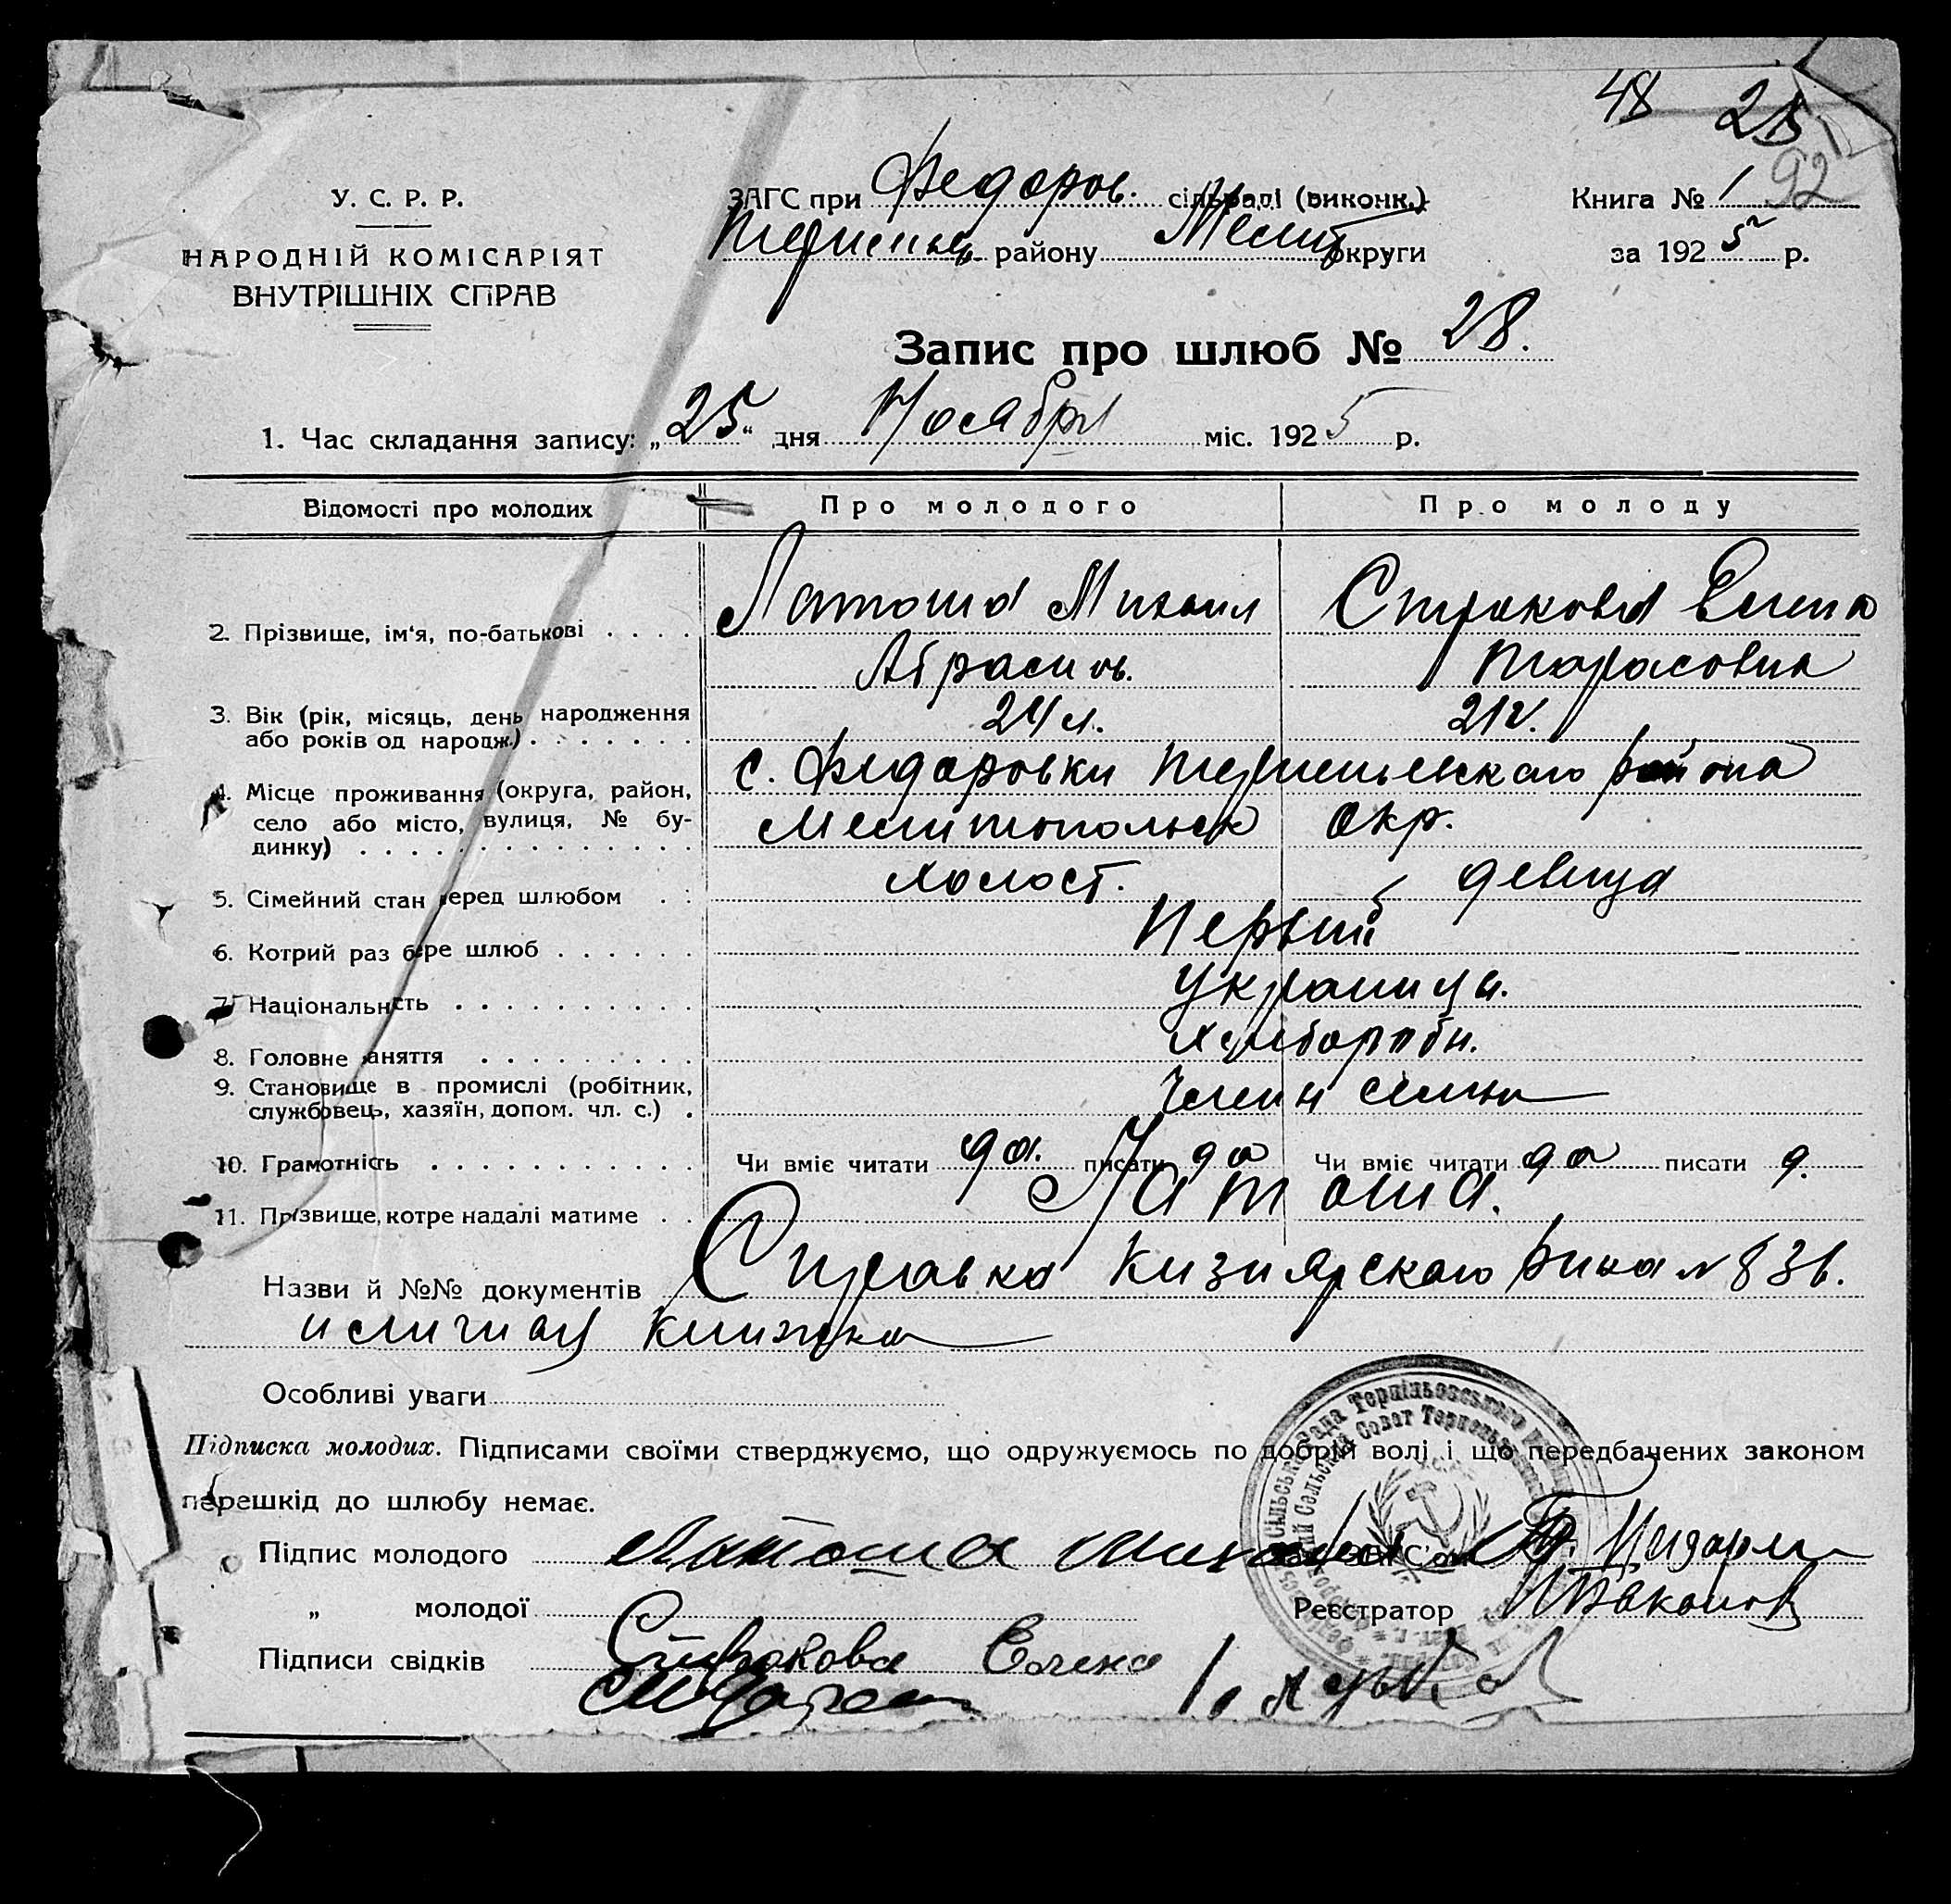 48 28
92
У. С. Р. Р.
НАРОДНІЙ КОМІСАРІЯТ
ВНУТРІШНІХ СПРАВ
ЗАГС при Федоров. сільраді (виконк.)
Терпеньев. району Мелит. округи
Книга № 1
за 1925 р.
Запис про шлюб № 28.
1. Час складання запису: „25“ дня Ноября міс. 1925 р.
Відомості про молодих
Про молодого
Про молоду
2. Прізвище, ім'я, по-батькові . . . .
Латоша Михаил
Абрамов.
Стракова Елена
Тарасовна
3. Вік (рік, місяць, день народження
або років од народж.) . . . . . . .
24 л.
21 г.
4. Місце проживання (округа, район,
село або місто, вулиця, № бу-
динку) . . . . . . . . . . . . . .
с. Федоровки Терпеньевскаго района
Мелитопольск окр.
5. Сімейний стан перед шлюбом . .
холост.
девица
6. Котрий раз бере шлюб . . . . . .
Первый
7. Національність . . . . . . . . . .
Украинцы.
8. Головне заняття . . . . . . . . .
Хлебороби.
9. Становище в промислі (робітник,
службовець, хазяїн, допом. чл. с.) .
Член семьи
10. Грамотність . . . . . . . . . . .
Чи вміє читати да. писати да
Чи вміє читати да писати д.
11. Прізвище, котре надалі матиме . .
Латоша.
Назви й №№ документів Справка Кизиярскаго Рика № 836.
и личная книжка
Особливі уваги
Підписка молодих. Підписами своїми стверджуємо, що одружуємось по добрій волі і що передбачених законом
перешкід до шлюбу немає.
Підпис молодого Латоша Михаил
„ молодої
Реєстратор
Підписи свідків
Стракова Елена